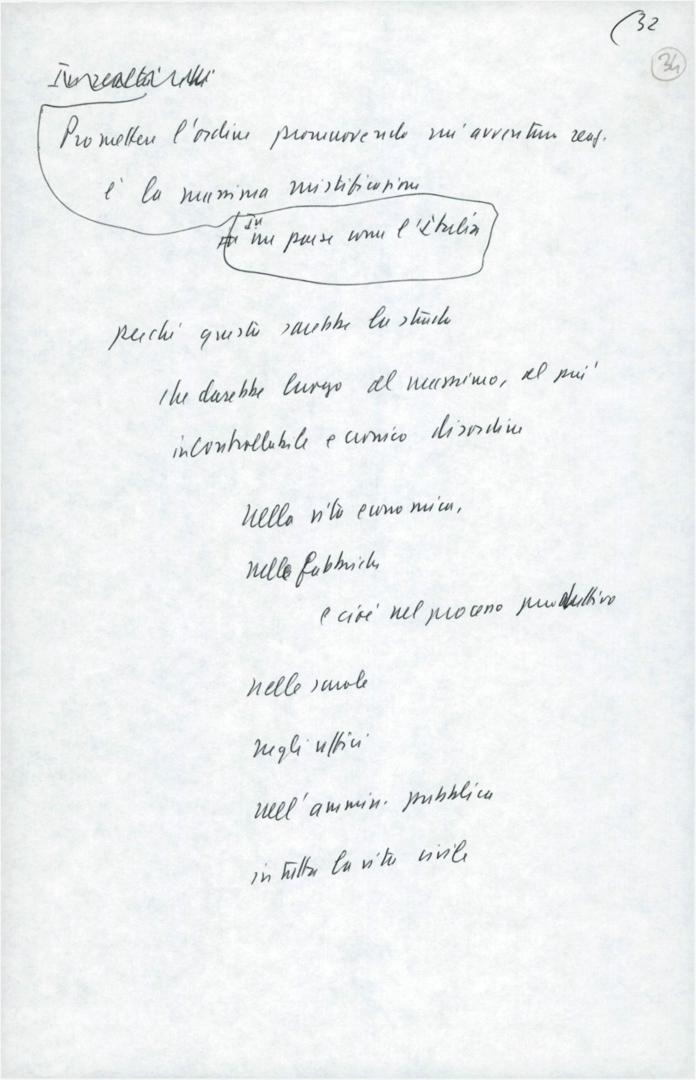 (32
34
Promettere l'ordine promuovendo un'avventura reaz.
è la massima mistificazione
In un paese come l'Italia
perché questa sarebbe la strada
che darebbe luogo al massimo, al più
incontrollabile e cronico disordine
nella vita economica,
nelle fabbriche
e cioè nel processo produttivo
nelle scuole
negli uffici
nell'ammin. pubblica
in tutta la vita civile